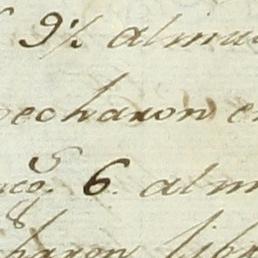 9½ almu
echaron e
6. alm
haron libr